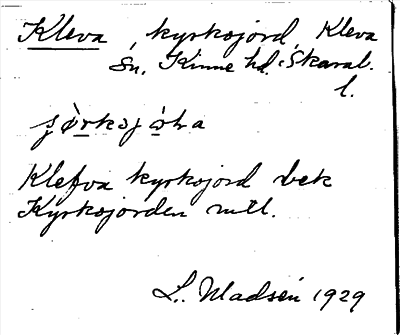 Kleva, kyrkojord, Kleva
sn. Kinne hd. Skarab.
l.
Klefva kyrkojord bek
Kyrkojorden mtl.
L. Madsén 1929